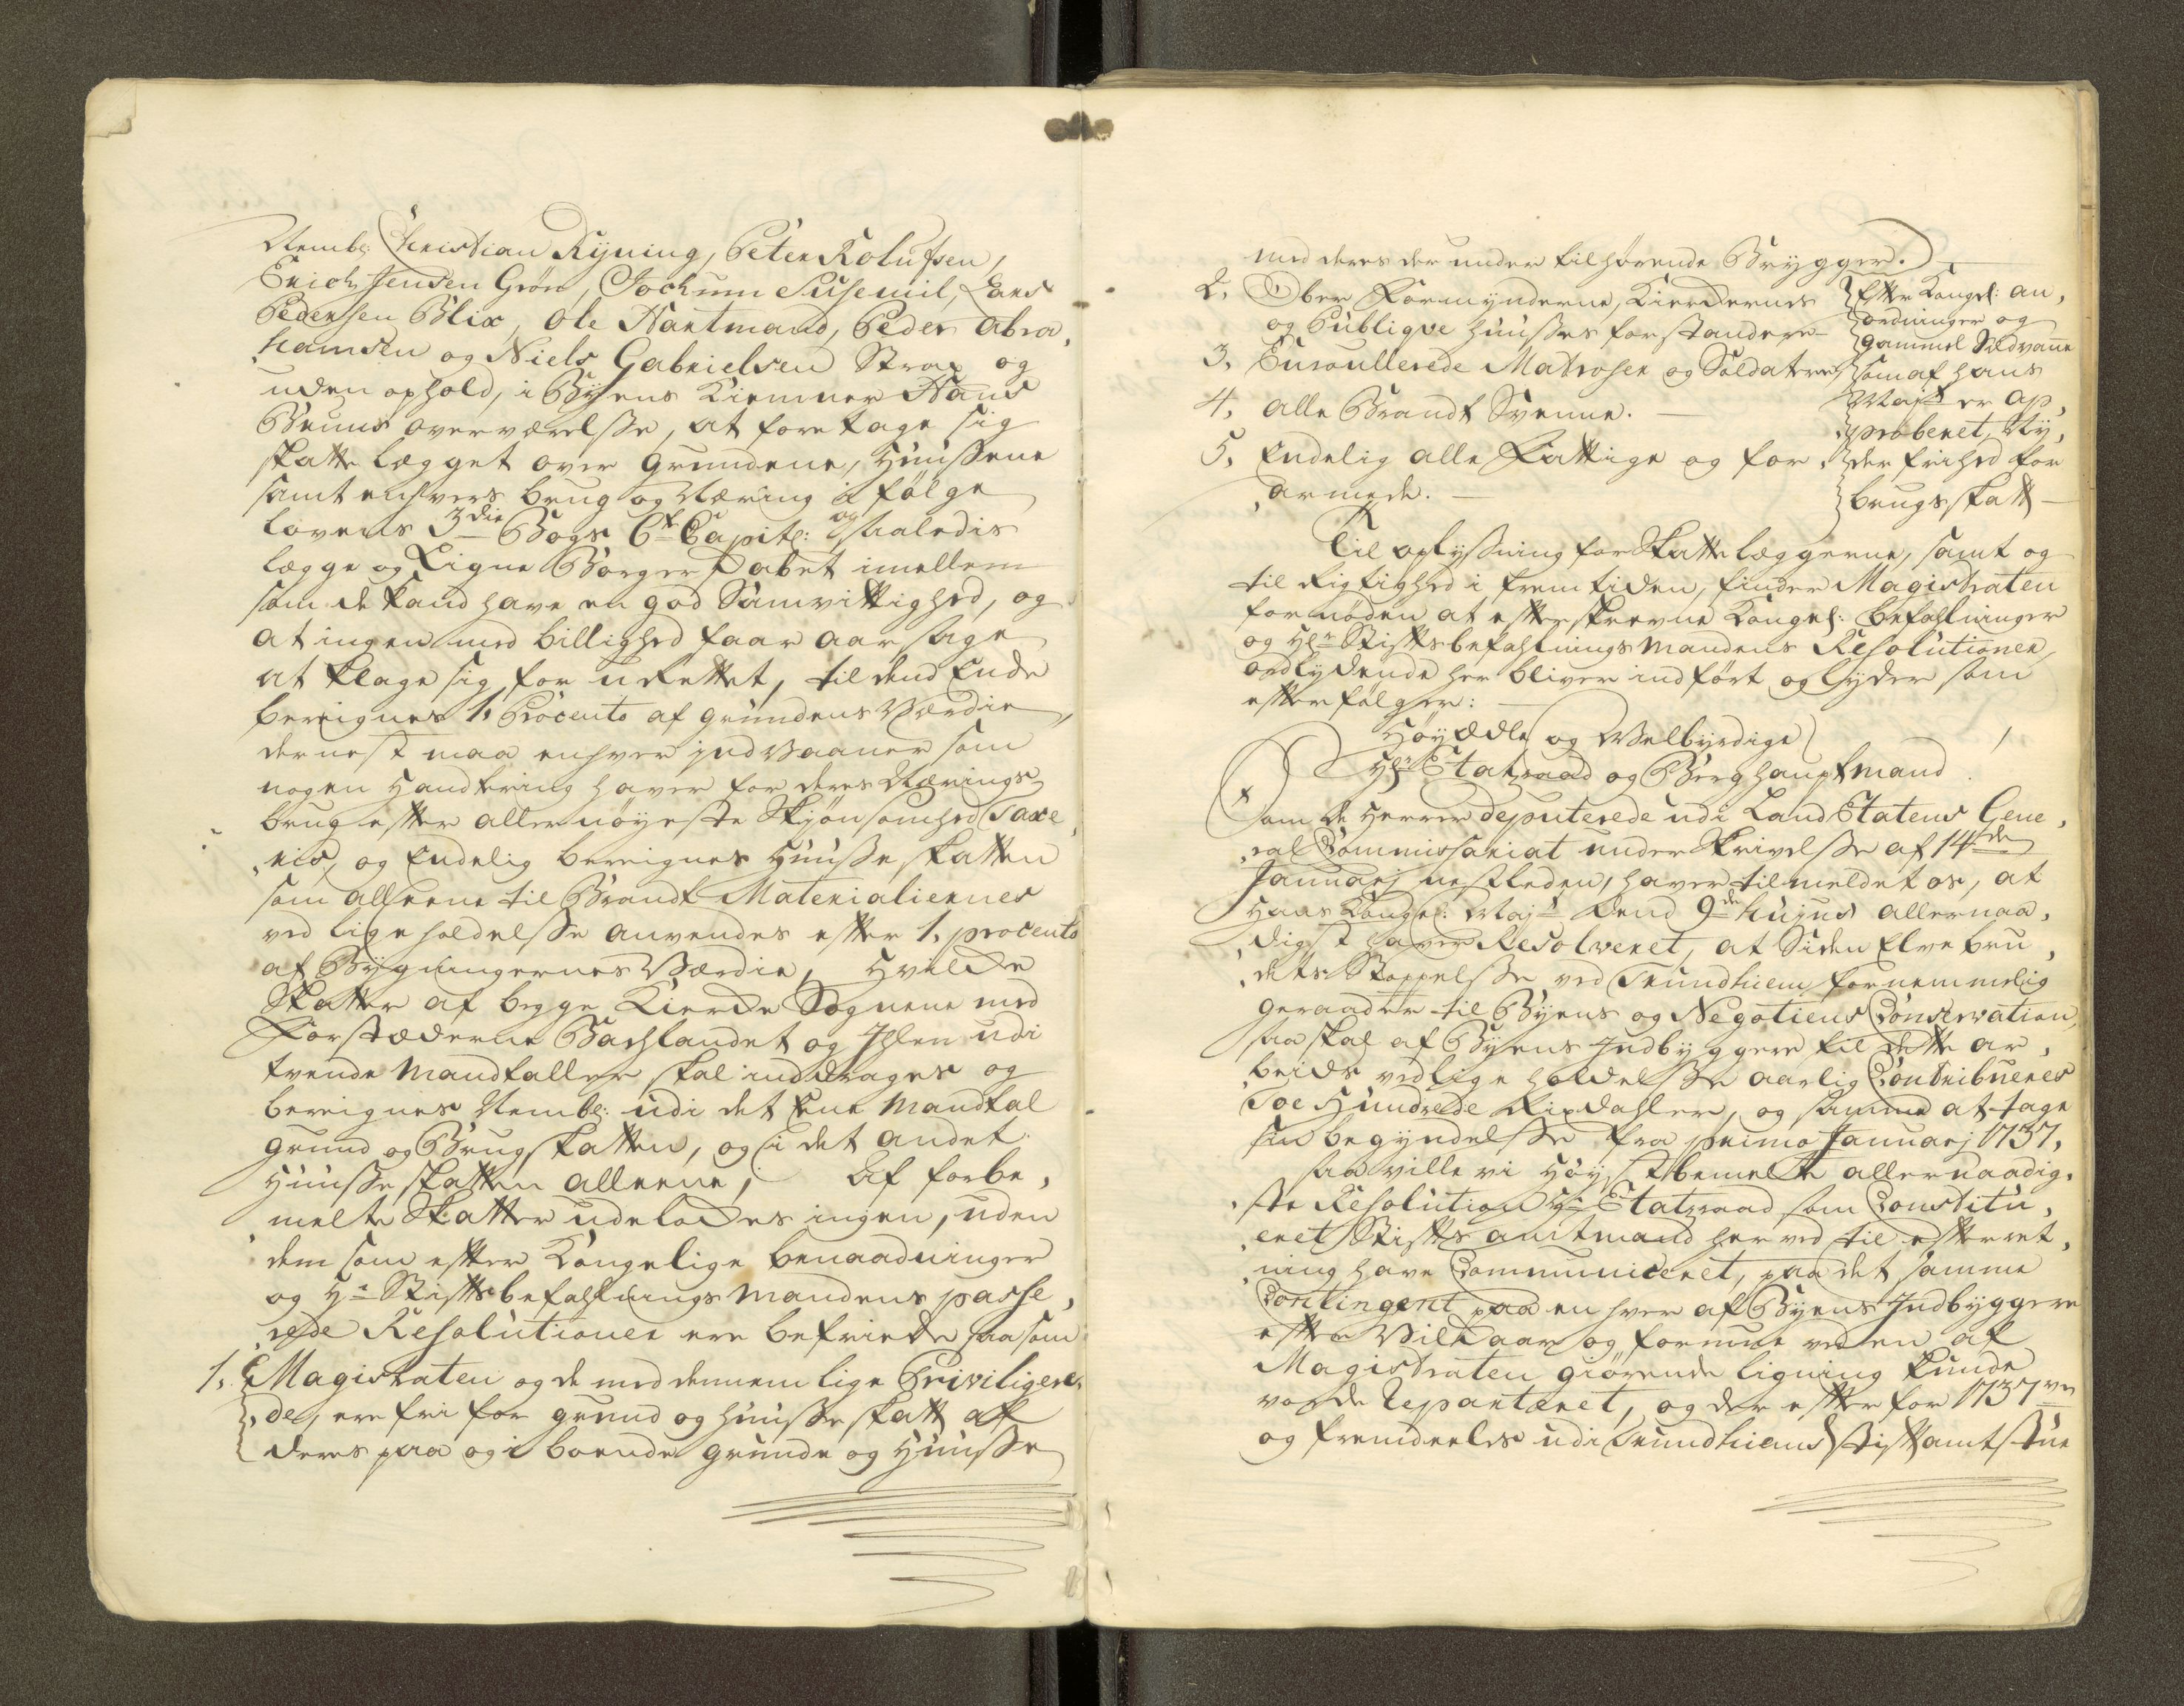 Nembl: Christian Ryning, Peter Rolufsen,
Erich Jensen Grøn, Jochum Susemil, Lars
Pedersen Blix, Ole Hartmand, Peder Abra,
hamsen og Niels Gabrielsen Strax og
uden ophold, i Byens Kiemner Hans
Bruuns overværelsse, at foretage sig
skatte legget over Grundene, Huussene
samt enhvers brug og Næring i følge
lovens 3die Bogs 6te Capitl: og saaledis
lægge og Ligne Borgerskabet imellem
som de kand have en god Samvittighed, og
at ingen med billighed faar aarsage
at klage sig for uRettet, til dend Ende
bereignes 1. Procento af grundens Værdie,
dernest maa enhver indvaaner som
nogen Handtering haver for deres Nærings
brug efter aller nøyeste Skiønsomhed Taxe,
,ris, og Endelig bereignes Huusse skatten
som alleene til Brandt Materialiernes
ved ligeholdelsse anvendes efter 1. procento
af Bygningernes Værdie, Hvilke
Skatter af begge Kierke Sognene med
Forstæderne Bachlandet og Ihlen udi
tvende Mandtaller skal inddrages og
bereignes Nembl: udi det Eene Mandtal
grund og Brugskatten, og i det andet
Huusse skatten alleene, Af forbe,
melte Skatter udelodes ingen, uden
dem som efter Kongelige benaadninger
og Hr Stiftsbefahlings Mandens passe,
,rede Resolutioner ere befriede saasom
1. Magistraten og de med dennem lige Priviligere,
,de, ere fri for grund og huusse skatt af
deres paa og i boende grunde og Huusse
med deres der under tilhørende Brygger.
2. Ober Formynderne, Kierkernes
og Publiqve Huusses forstandere
3. Enroullerede Matroser og Soldatere
4. alle Brandt Svenne.
5. Endelig alle Fattige og for,
,armede.
Efter Kongel: an,
ordninger og
gammel Sædvane
som af hans
Mayt er ap,
,proberet, Ny,
der frihed for
brugsskatt
Til oplyssning for Skatteleggerne, samt og
til Rigtighed i fremtiden, finder Magistraten
fornøden at efterskrevne Kongel: befahlninger
og Hr Stiftsbefahlnings Mandens Resolutioner
ordlydende her bliver indført og lyder som
efterfølger:
Høyædle og Velbyrdige
Hr Etatzraad og Berghauptmand
Som de Herrer deputerede udi Land Etatens Gene,
,ral Commissariat under Skrivelsse af 14de
Januarj nestleden, haver tilmeldet os, at
Hans Kongel: Mayt dend 9de hujus allernaa,
,digst haver Resolveret, at Siden Elvebru,
,dets Stoppelsse ved Trundhiem fornemmelig
geraader til Byens og Negotiens Conservation,
saa skal af Byens Indbyggere til dette ar,
,beids vedlige holdelsse aarlig Contribueres
Toe Hundrede Rixdahler, og samme at tage
sin begyndelsse fra primo Januarj 1737,
saa ville vi Høystbemelte allernaadig,
,ste Resolution Hr Etatzraad som Constitu,
,eret Stifts amtmand herved til efterret,
,ning have Communiceret, paa det samme
Contingent paa en hver af Byens Indbyggere
efter Vilkaar og formue ved en af
Magistraten giørende ligning kunde
vorde Reparteret, og der efter for 1737
og fremdeeles udi Trundhiems Stiftamtstue